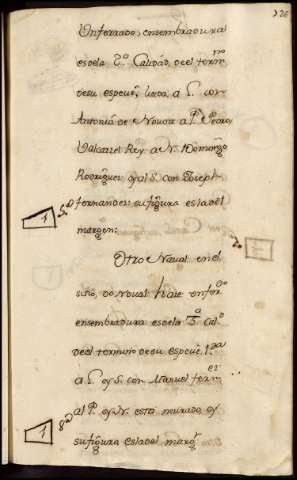 326
Un ferrado, ensembradura
es de la 2.ª Calidad, de el term.no
desu especie, linda a L. con
Antonia de Novoa a P. Pedro
Valcarzel Rey a N. Domingo
Rodriguez y al S. con Joseph
fernandez su figura es la del
margen:
Otro Naval en el
sitio, de Noval haze un fer.do
ensembradura es de la 3.ª Cal.d
de el termino de su especie l.da
a L. y S. con Manuel fern.ez
al P. y N. esta murado y
su figura es la del marg.n